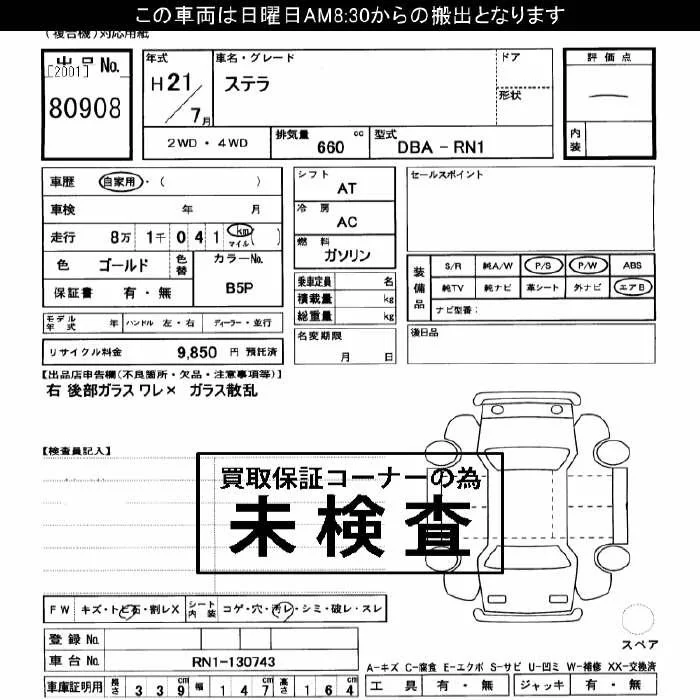 この車両は日曜日AM8:30からの搬出となります
(複合機)対応用紙
出品 No.
[2001]
80908
年式
H21/7月
車名・グレード
ステラ
ドア
形状
評価点
内装
2WD・4WD
排気量 660 cc
型式 DBA-RN1
車歴 自家用・( )
車検 年 月
走行 8万 1千 0 4 1 km マイル ( )
色 ゴールド 色替
カラーNo.
B5P
保証書 有・無
モデル年式 年 ハンドル 左・右 ディーラー・並行
リサイクル料金 9,850 円 預託済
シフト
AT
冷房
AC
燃料
ガソリン
乗車定員 名
積載量 kg
総重量 kg
名変期限
月 日
セールスポイント
装備品
S/R 純A/W P/S P/W ABS
純TV 純ナビ 革シート 外ナビ エアB
ナビ型番:
後日品
【出品店申告欄(不良箇所・欠品・注意事項等)】
右 後部ガラス ワレ× ガラス散乱
【検査員記入】
買取保証コーナーの為
未検査
FW キズ・トビ石・割レX
シート内装 コゲ・穴・汚レ・シミ・破レ・スレ
登録 No.
車台 No. RN1-130743
車庫証明用 長さ 3 3 9 cm 幅 1 4 7 cm 高さ 1 6 4 cm
スペア
A-キズ C-腐食 E-エクボ S-サビ U-凹ミ W-補修 XX-交換済
工具 有・無 ジャッキ 有・無